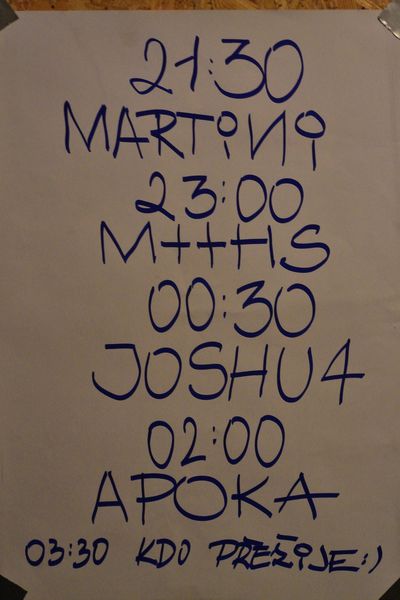 21:30
MARTiNi
23:00
M++HS
00:30
JOSHU4
02:00
APOKA
03:30 KDO PŘEŽIJE:)